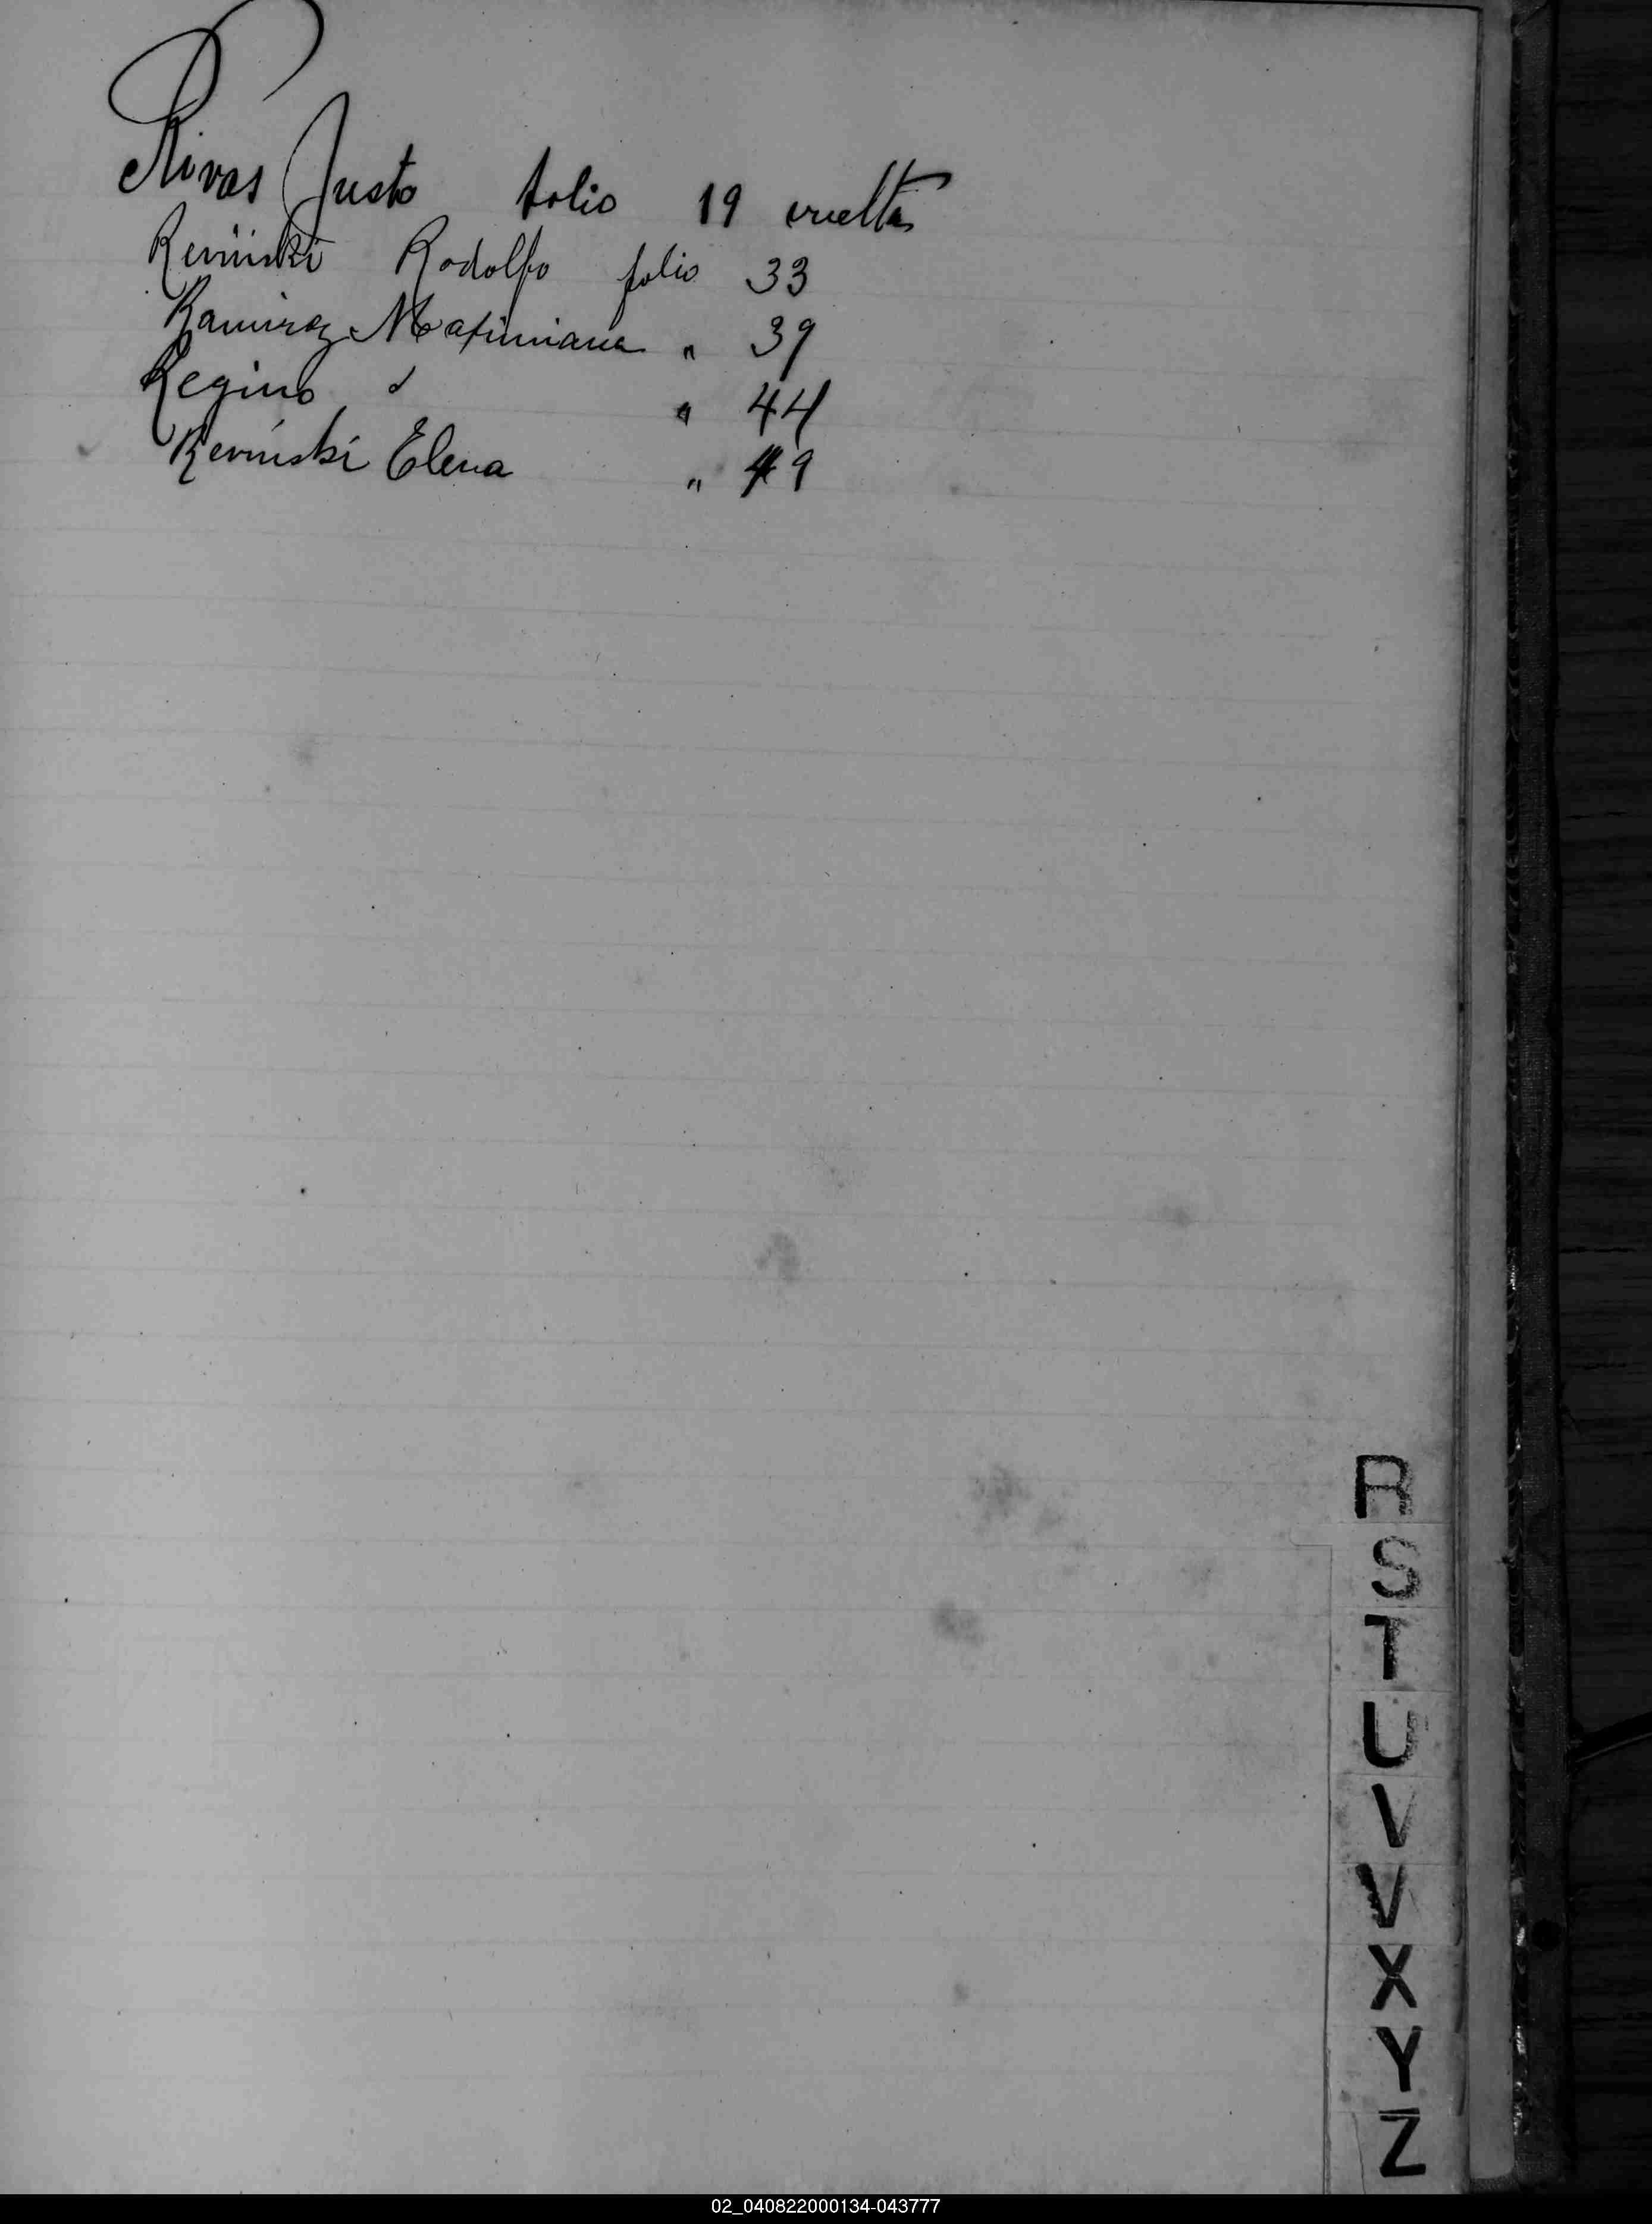 Rivas Justo folio 19 vuelta
Reviñski Rodolfo folio 33
Ramirez Maximiana " 39
Regino " 44
Reviñski Elena " 49
R
S
T
U
V
V
X
Y
Z
02_040822000134-043777